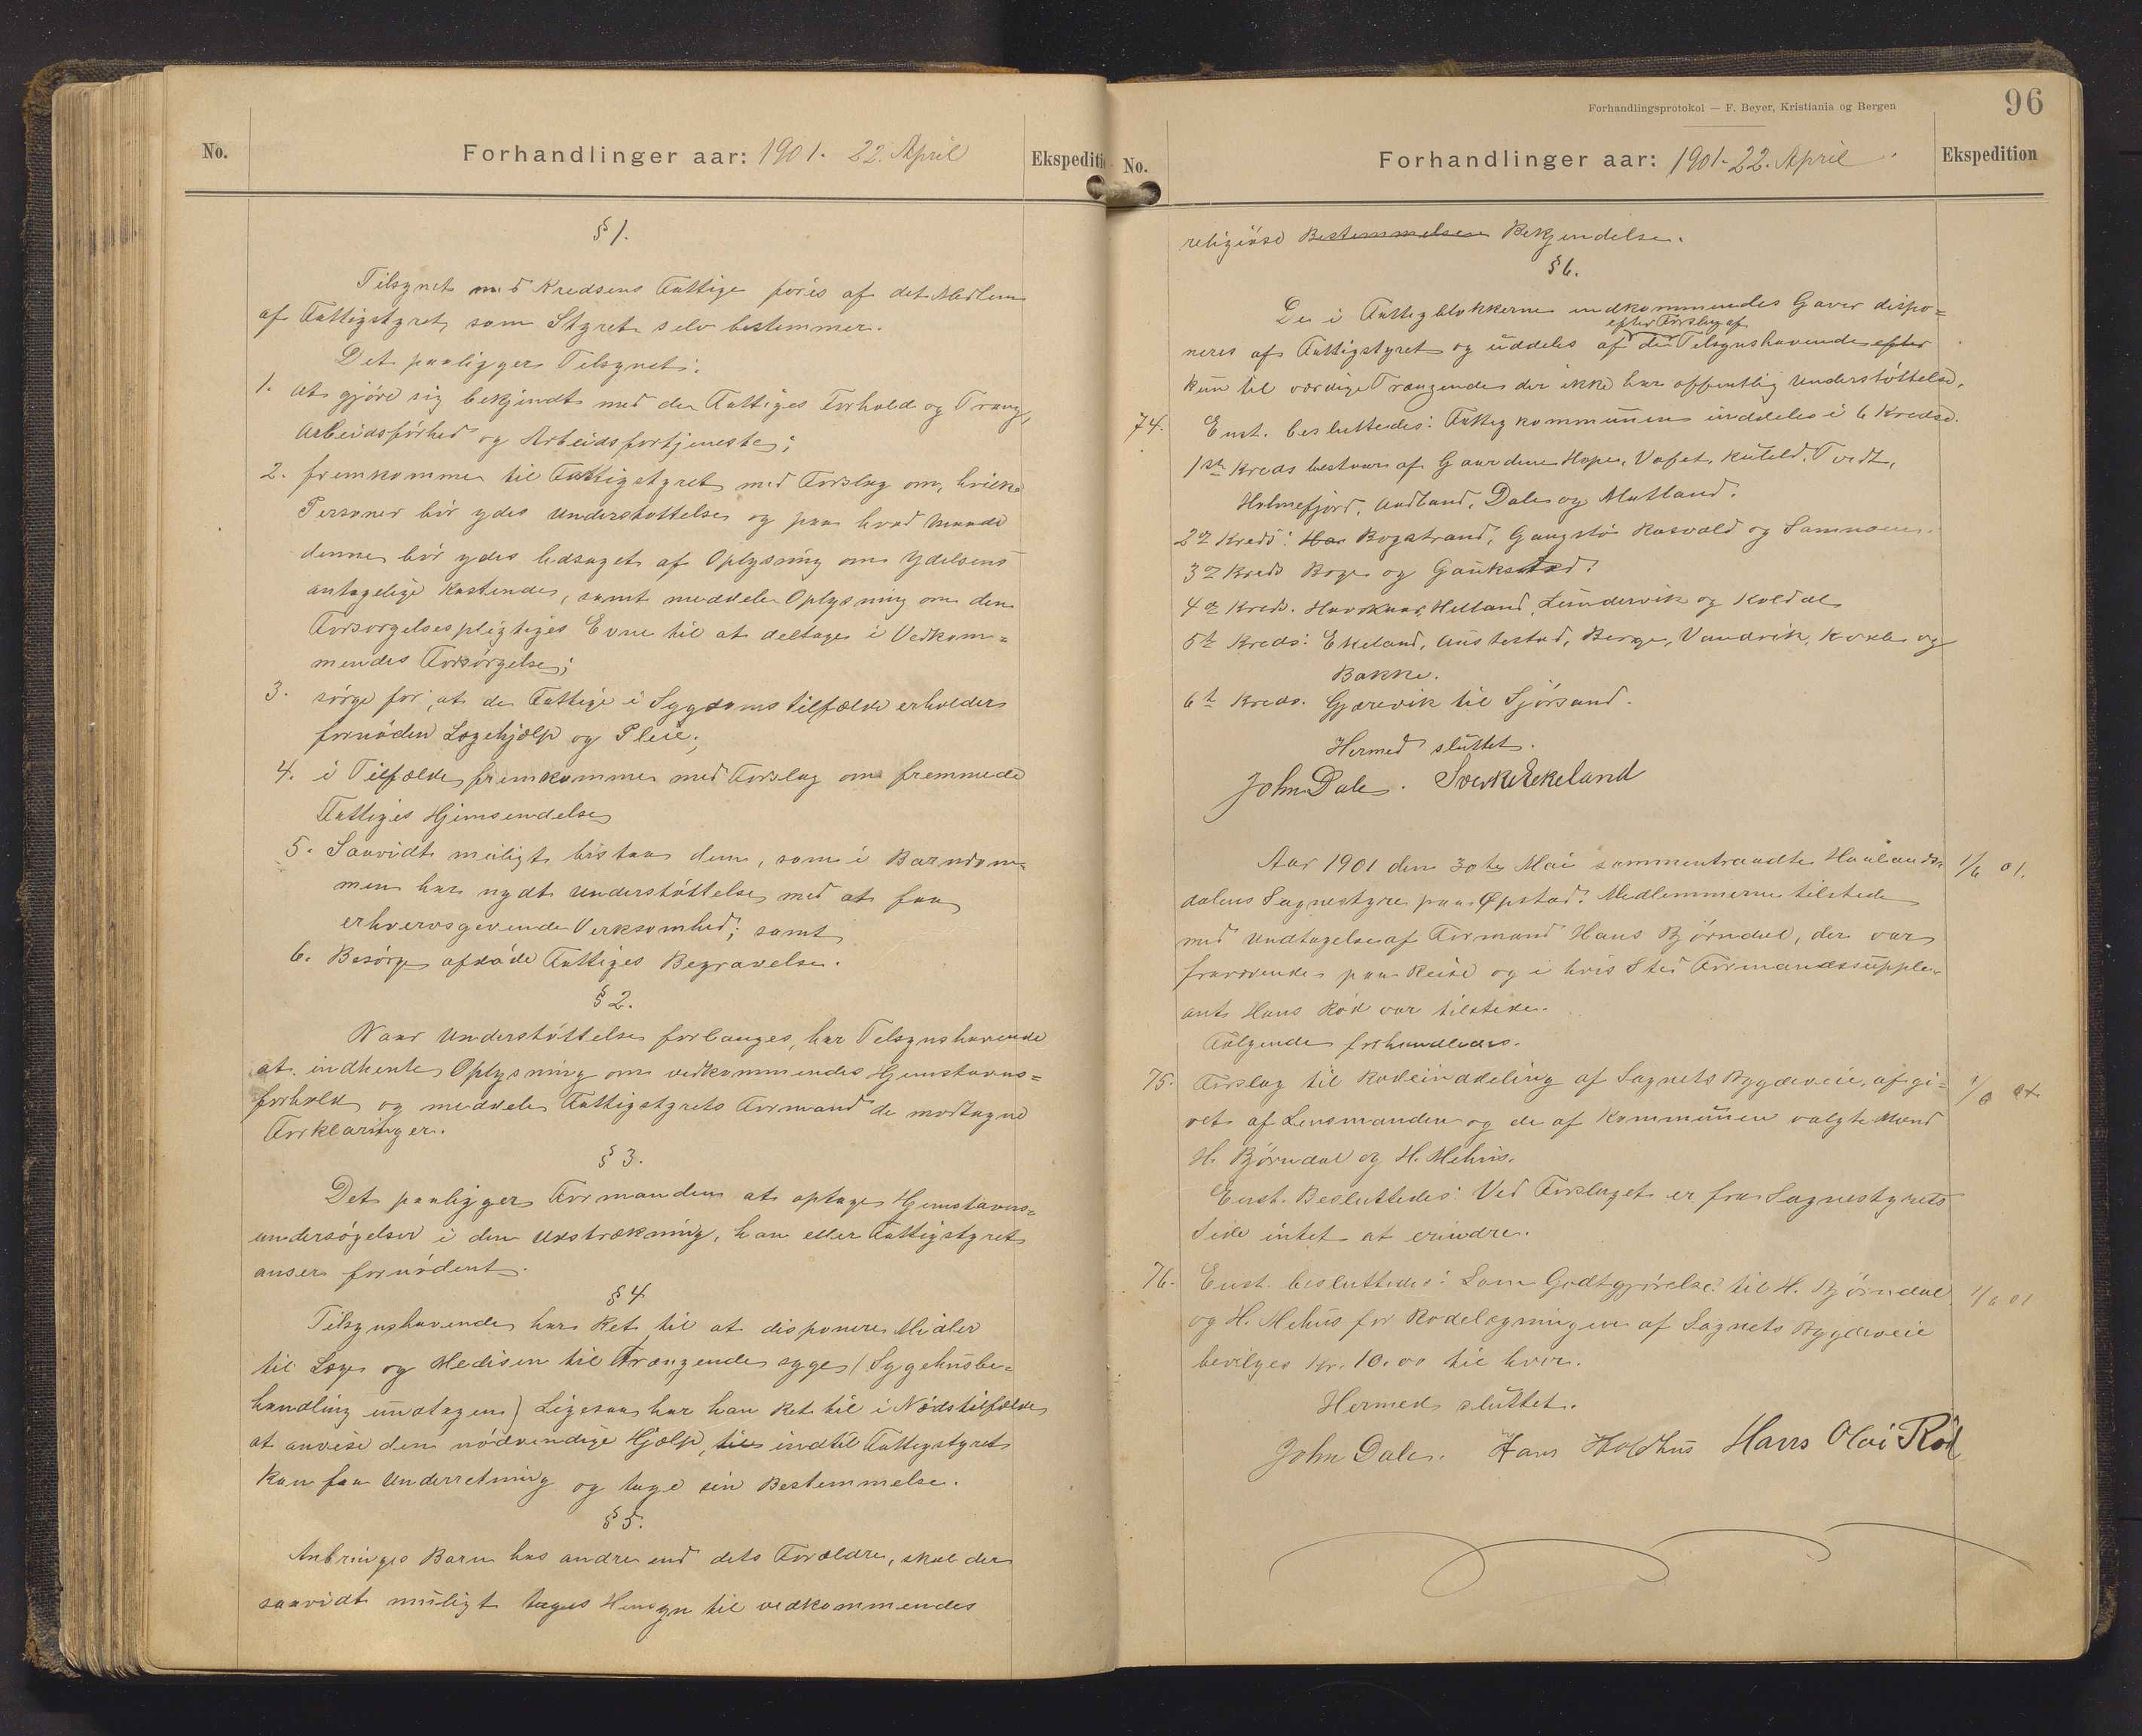 No.
Forhandlinger aar: 1901. 22. April
Ekspediti
§ 1.
Tilsynet med Kredsens Fattige føres af det Medlem
af Fattigstyret, som Styret selv bestemmer.
Det paaligger Tilsynet:
1. At gjøre sig bekjendt med den Fattiges Forhold og Trang,
Arbeidsførhed og Arbeidsfortjeneste;
2. fremkomme til Fattigstyret med Forslag om, hvilke
Personer bør ydes Understøttelse og paa hvad Maade
denne bør ydes ledsaget af Oplysning om Ydelsens
antagelige Kostende, samt meddele Oplysning om den
Forsorgelsespligtiges Evne til at deltage i Vedkom=
mendes Forsørgelse;
3. sørge for, at de Fattige i Sygdomstilfælde erholder
fornøden Lægehjælp og Pleie;
4. i Tilfælde fremkomme med Forslag om fremmede
Fattiges Hjemsendelse
5. Saavidt muligt bistaa dem, som i Barndom=
men har nydt Understøttelse med at faa
erhvervsgivende Verksomhed; samt
6. Besørge afdøde Fattiges Begravelse.
§ 2.
Naar Understøttelse forlanges, har Tilsynshavende
at indhente Oplysning om vedkommendes Hjemstavns=
forhold og meddele Fattigstyrets Formand de modtagne
Forklaringer.
§ 3.
Det paaligger Formanden at optage Hjemstavns=
undersøgelser i den Udstrækning, han eller Fattigstyret
anser fornødent.
§ 4
Tilsynshavende har Ret til at disponere Midler
til Læge og Medisin til Trængende syge (Sygehusbe=
handling undtagen) Ligesaa har han Ret til i Nødstilfælde
at anvise den nødvendige Hjælp, til indtil Fattigstyret
kan faa Underretning og tage sin Bestemmelse.
§ 5.
Anbringes Barn hos andre end dets Forældre, skal der
saavidt muligt tages Hensyn til vedkommendes
Forhandlingsprotokol — F. Beyer, Kristiania og Bergen
96
No.
Forhandlinger aar: 1901. 22. April
Ekspedition
religiøse Bestemmelser Bekjendelse.
§ 6.
De i Fattigblokkerne indkommende Gaver dispo=
efter Forslag af
neres af Fattigstyret og uddeles af de Tilsynshavende efter
kun til værdige Trængende der ikke har offentlig Understøttelse.
74. Enst. besluttedes: Fattigkommunen inddeles i 6 Kredse.
1ste Kreds bestaar af Gaardene Hope, Tvedt,
Holmefjord, Audland, Dale og
2den Kreds: Har Bogstrand, Gangstø Rosvold og Samnøen.
3de Kreds Boge og Gaukstad.
4de Kreds. Havskaar, Helland, Lundervik og Koldal
5te Kreds: Ekeland, Austestad, Berge, Vandvik, og
Bakke.
6te Kreds. Gjærevik til Sjørsand.
Hermed sluttet.
John Dale. Sverke Ekeland
Aar 1901 den 30te Mai sammentraadte Haalands=
1/6 01.
dalens Sognestyre paa Øpstad. Medlemmerne tilstede
med Undtagelse af Formand Hans Bjørndal, der var
fraværende paa Reise og i hvis Sted Formandssupple=
ant Hans Rød var tilstede.
Følgende forhandledes.
75. Forslag til Rodeinddeling af Sognets Bygdeveie, afgi=
1/6 01
vet af Lensmanden og de af Kommunen valgte Mænd
H. Bjørndal og H. Mehus.
Enst. Besluttedes: Ved Forslaget er fra Sognestyrets
Side intet at erindre.
76. Enst. besluttedes: Som Godtgjørelse til H. Bjørndal
1/6 01
og H. Mehus for Rodelægningen af Sognets Bygdeveie
bevilges Kr. 10.00 til hver.
Hermed sluttet.
John Dale. Hans Holdhus Hans Olai Rød